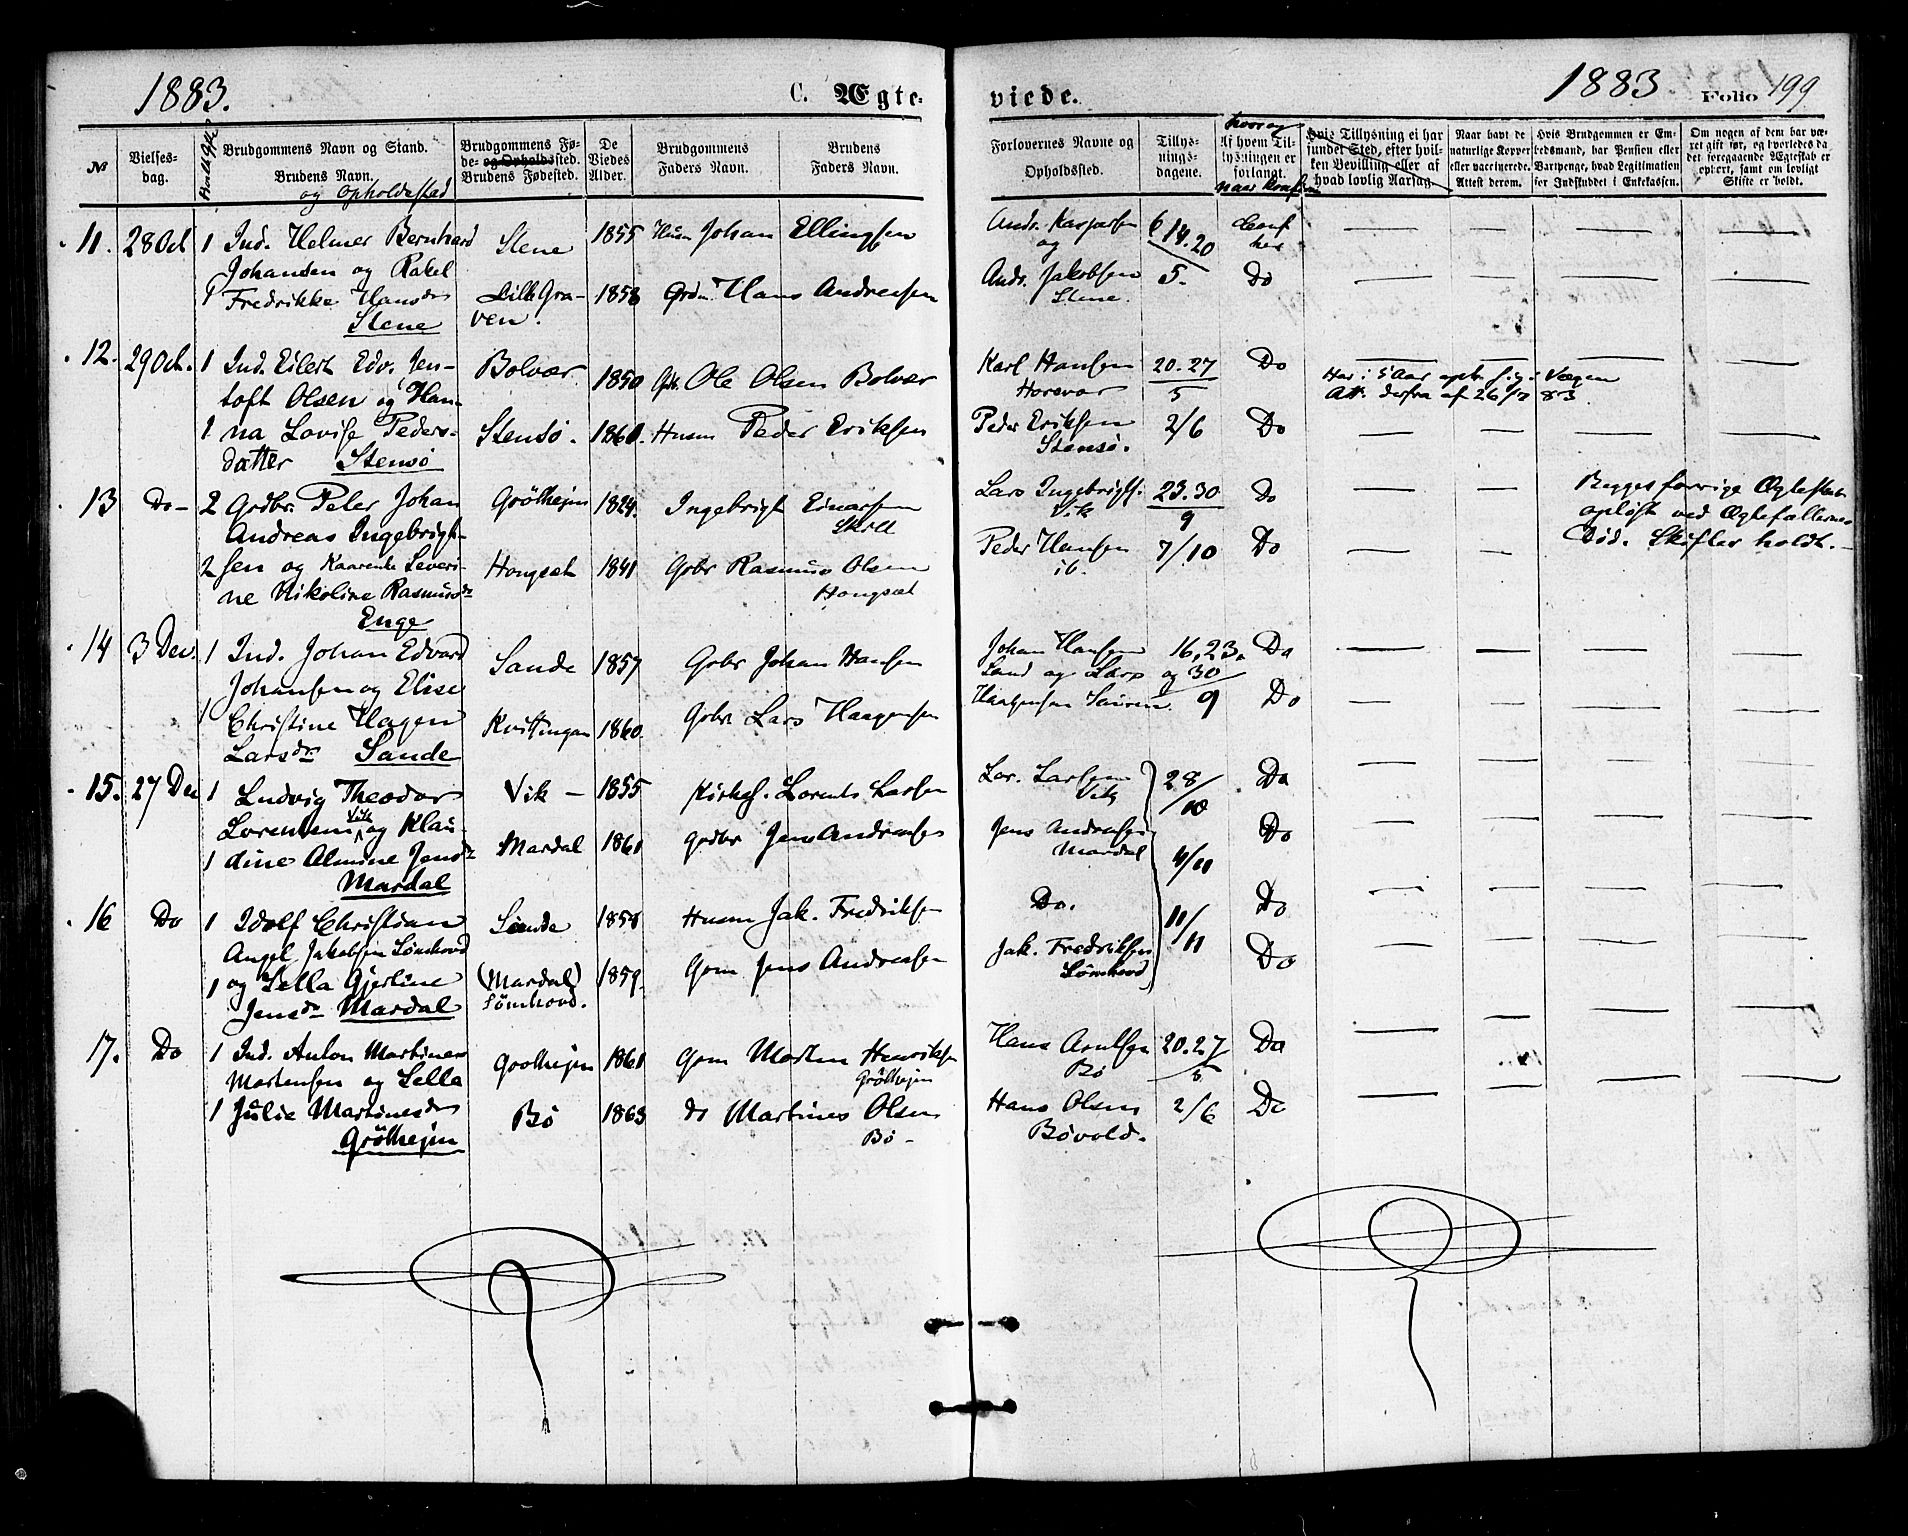 1883.
C. Ægteviede.
1883
Folio 199
№
Vielsesdag.
Brudgommens Navn og Stand.
Brudens Navn.
og Opholdssted
Brudgommens Føde- og Opholdssted.
Brudens Fødested.
De Viedes Alder.
Brudgommens Faders Navn.
Brudens Faders Navn.
Forlovernes Navne og Opholdssted.
Tillysningsdagene.
Af hvem Tillysningen er forlangt.
Hvis Tillysning ei har fundet Sted, efter hvilken Bevilling eller af hvad lovlig Aarsag.
Naar havt de naturlige Kopper eller vaccinerede. Attest derom.
Hvis Brudgommen er Embedsmand, har Pension eller Vartpenge, hvad Legitimation for Indskuddet i Enkekassen.
Om nogen af dem har været gift før, og hvorledes da det foregaaende Ægteskab er ophørt, samt om lovligt Skifte er holdt.
11. 28 Oct 1 Ind. Helmer Bernhard Stene 1855 Husm Johan Ellingsen Andr. Kaspersen 6 14. 20 Conf her
Johansen og Rakel og
1 Fredrikke Hansdr Lille Gra- 1858 Grdm. Hans Andreasen Andr. Jakobsen 5. Do
Stene ven. Stene.
12. 29 Oct. 1 Ind. Eilert Edv. Jen- Bolvær 1850 Gbr. Ole Olsen Bolvær Karl Hansen 20. 27 Do
toft Olsen og Han- Horsvær 5 Har i 5 Aar oph. sig i Vægen
Att. derfra af 26/5 83
1 na Lovise Peders- Stensö. 1860. Husm Peder Eriksen Peder Eriksen 2/6 Do
datter Stensö Stensö.
13 Do 2 Grdbr. Peter Johan Grölhejen 1824. Ingebrigt Einarsen Lars Ingebrigts. 23. 30 Do Begges forrige Ægteskab
Andreas Ingebrigt- Vik 9 opløst ved Ægtefællernes
2 sen og Kaarenke Severi- Hongset 1841 Gbr Rasmus Olsen Peder Hansen 7/10 Do Død. Skifter holdt.
ne Nikoline Rasmusdr Hongset ib.
Enge
14 3 Dec. 1 Ind. Johan Edvard Sande 1857 Gbr Johan Hansen Johan Hansen 16, 23. Do
Johansen og Elise Sand og Lars og 30
1 Christine Hagen Kvittingen 1860 Gbr Lars Haagensen Haagensen 9 Do
Larsdr Sande
15. 27 Dec 1 Ludvig Theodor Vik 1855 Kirkes. Lorents Larsen Lor. Larsen 28/10 Do
Lorentsen Vik og Klau- Vik
1 dine Almine Jensdr Mardal 1861 Grdbr Jens Andreasen Jens Andreasen 4/11 Do
Mardal Mardal
16 Do 1 Idolf Christian Sande 1858 Husm Jak. Fredriksen Do. 11/11 Do
Angel Jakobsen Sømhovd
1 og Sella Gjertine (Mardal) 1859. Gom Jens Andreasen Jak. Fredriksen Do
Jensdr Mardal Sømhovd. Sømhovd
17. Do 1 Ind. Anton Martines Grolhejen 1861 Gom Morten Henriksen Hans Arntsen 20. 27 Do
Mortensen og Sella Grölhejen Bö 5
1 Julie Martinesdr Bö 1863 do Martines Olsen Hans Olsen 2/6 Do
Grölhejen Bö Bövold.